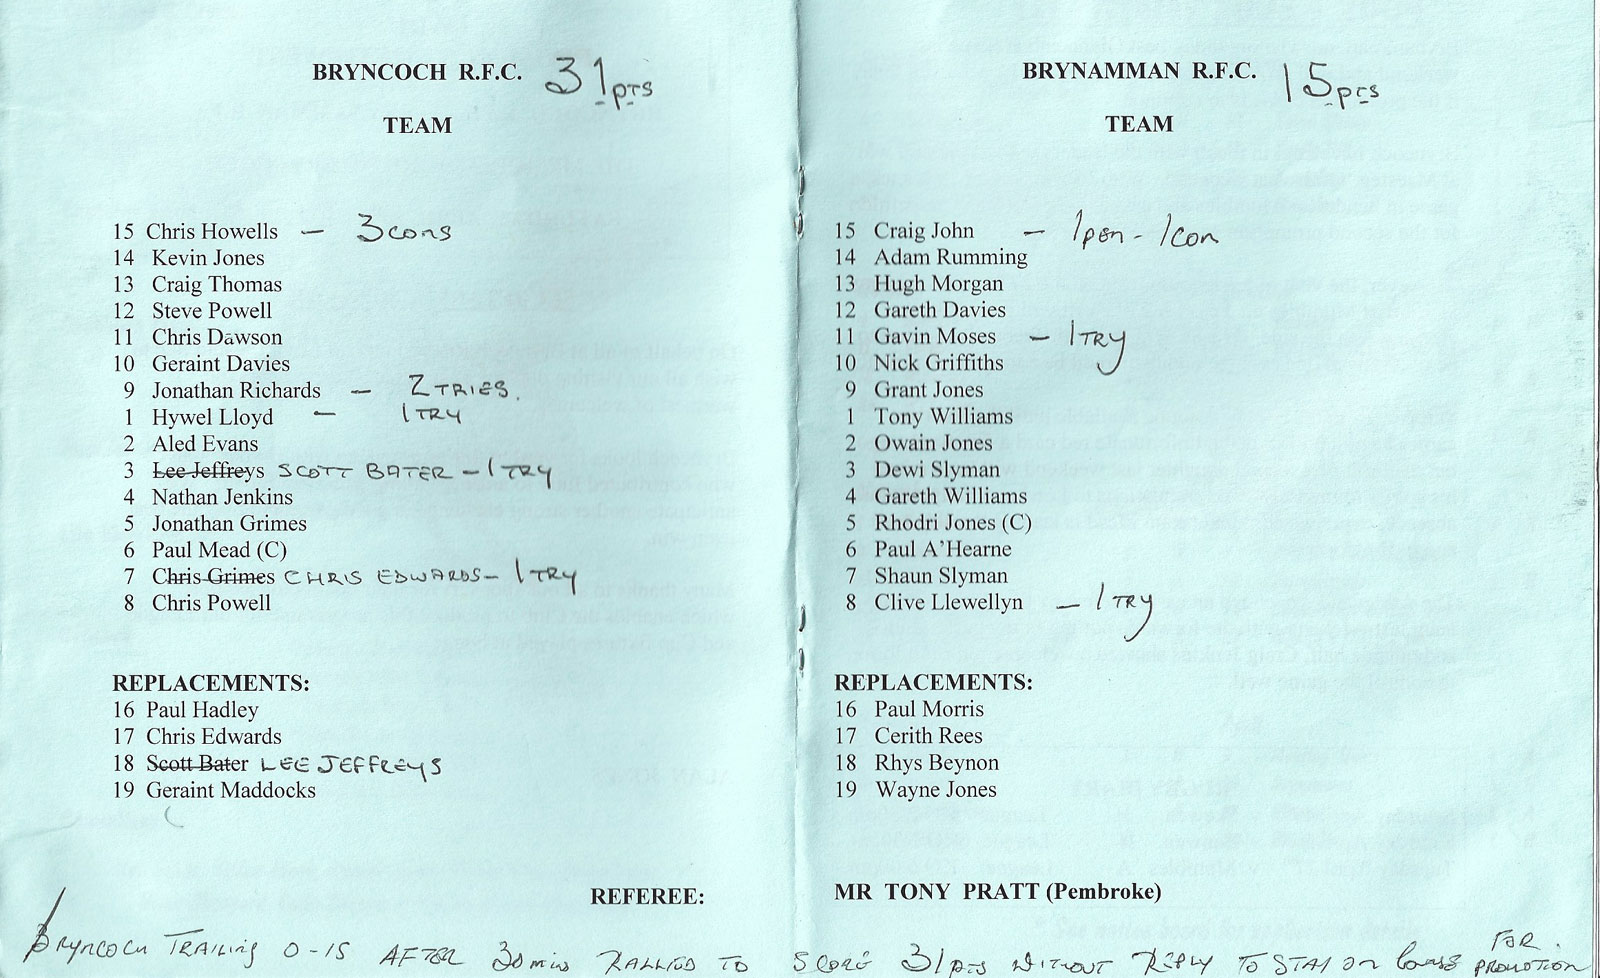 BRYNCOCH R.F.C. 31pts
TEAM
15 Chris Howells — 3cons
14 Kevin Jones
13 Craig Thomas
12 Steve Powell
11 Chris Dawson
10 Geraint Davies
9 Jonathan Richards — 2 TRIES.
1 Hywel Lloyd — 1 TRY
2 Aled Evans
3 Lee Jeffreys SCOTT BATER — 1 TRY
4 Nathan Jenkins
5 Jonathan Grimes
6 Paul Mead (C)
7 Chris Grimes CHRIS EDWARDS — 1 TRY
8 Chris Powell
REPLACEMENTS:
16 Paul Hadley
17 Chris Edwards
18 Scott Bater LEE JEFFREYS
19 Geraint Maddocks
REFEREE:
BRYNAMMAN R.F.C. 15pts
TEAM
15 Craig John — 1pen - 1con
14 Adam Rumming
13 Hugh Morgan
12 Gareth Davies
11 Gavin Moses — 1 TRY
10 Nick Griffiths
9 Grant Jones
1 Tony Williams
2 Owain Jones
3 Dewi Slyman
4 Gareth Williams
5 Rhodri Jones (C)
6 Paul A'Hearne
7 Shaun Slyman
8 Clive Llewellyn — 1 TRY
REPLACEMENTS:
16 Paul Morris
17 Cerith Rees
18 Rhys Beynon
19 Wayne Jones
MR TONY PRATT (Pembroke)
BRYNCOCH TRAILING 0-15 AFTER 30 mins RALLIED TO SCORE 31pts WITHOUT REPLY TO STAY ON COURSE FOR PROMOTION